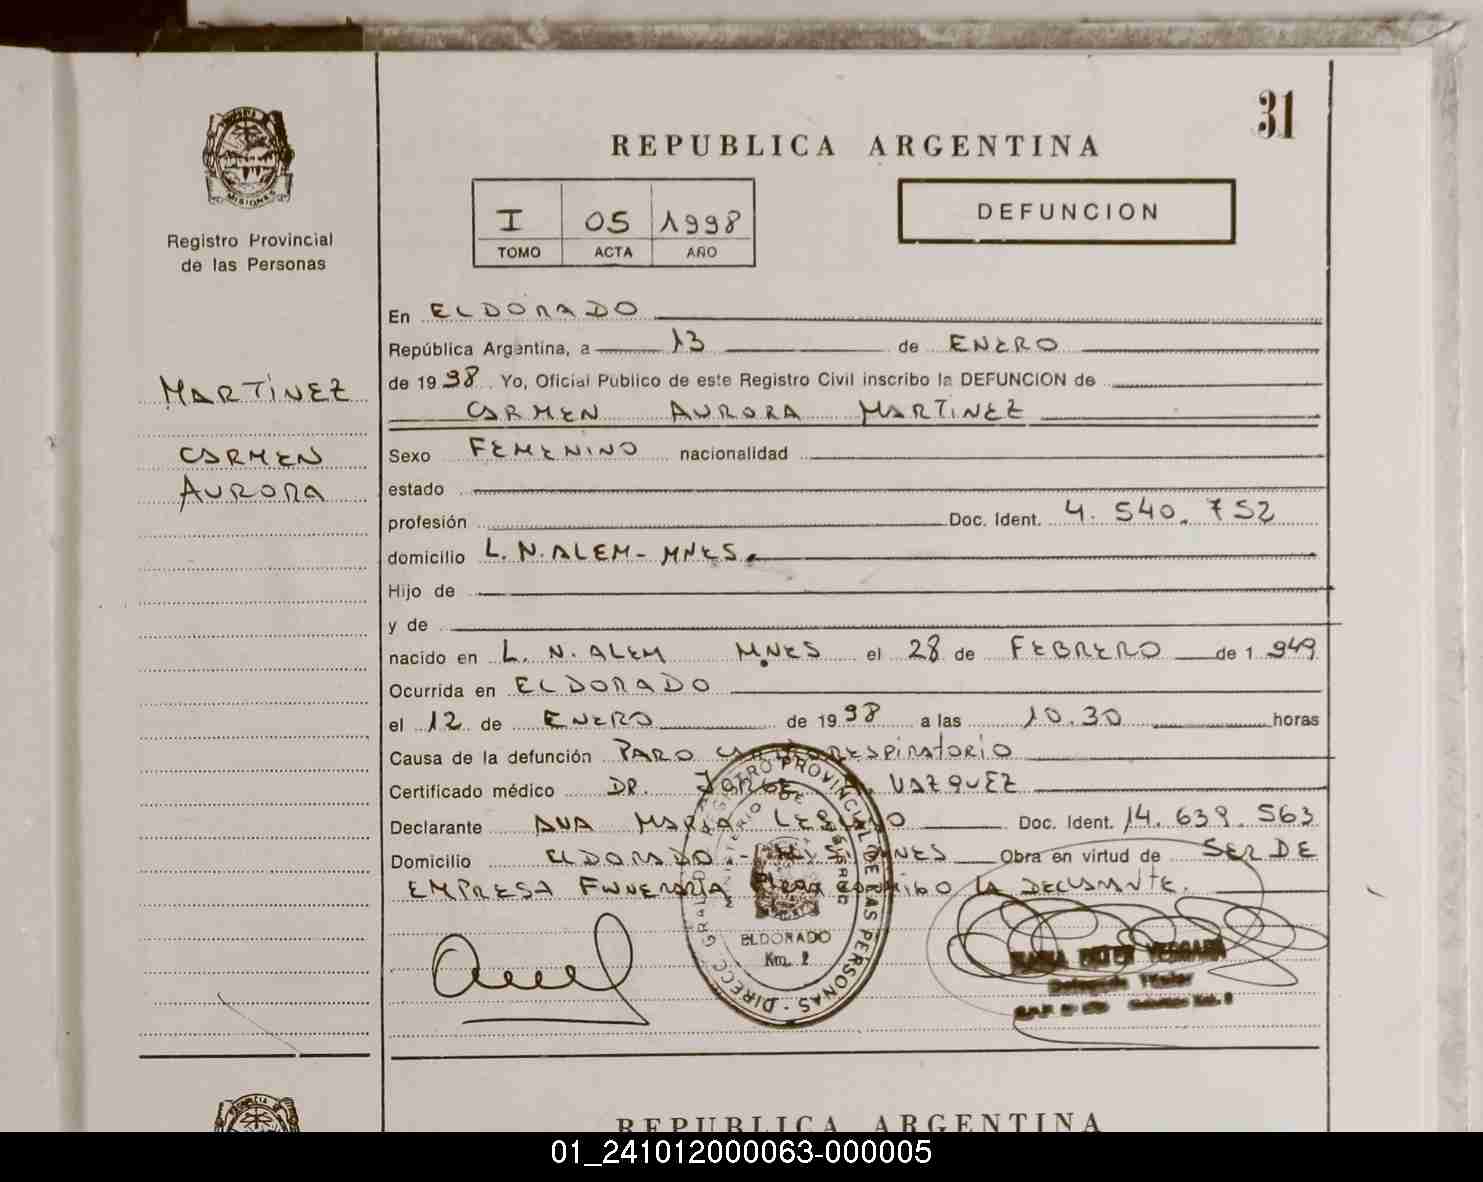 31
REPUBLICA ARGENTINA
MISIONES
Registro Provincial
de las Personas
I 05 1998
TOMO ACTA AÑO
DEFUNCION
MARTÍNEZ
CARMEN
AURORA
En ELDORADO
República Argentina, a 13 de ENERO
de 1998 Yo, Oficial Público de este Registro Civil inscribo la DEFUNCION de
CARMEN AURORA MARTÍNEZ
Sexo FEMENINO nacionalidad
estado
profesión Doc. Ident. 4.540.752
domicilio L.N.ALEM-MNES.
Hijo de
y de
nacido en L. N. ALEM MNES el 28 de FEBRERO de 1.949
Ocurrida en ELDORADO
el 12 de ENERO de 1998 a las 10.30 horas
Causa de la defunción PARO CARDIORESPIRATORIO
Certificado médico DR. JORGE VAZQUEZ
Declarante ANA MARIA Doc. Ident. 14.639.563
Domicilio ELDORADO - MNES Obra en virtud de SER DE
EMPRESA FUNERARIA LA DECLARANTE.
DIRECC. GRAL. DE REGISTRO PROVINCIAL DE LAS PERSONAS
MINISTERIO DE GOBIERNO
ELDORADO
Km. 2
VERGARA
Delegada Titular
REPUBLICA ARGENTINA
01_241012000063-000005